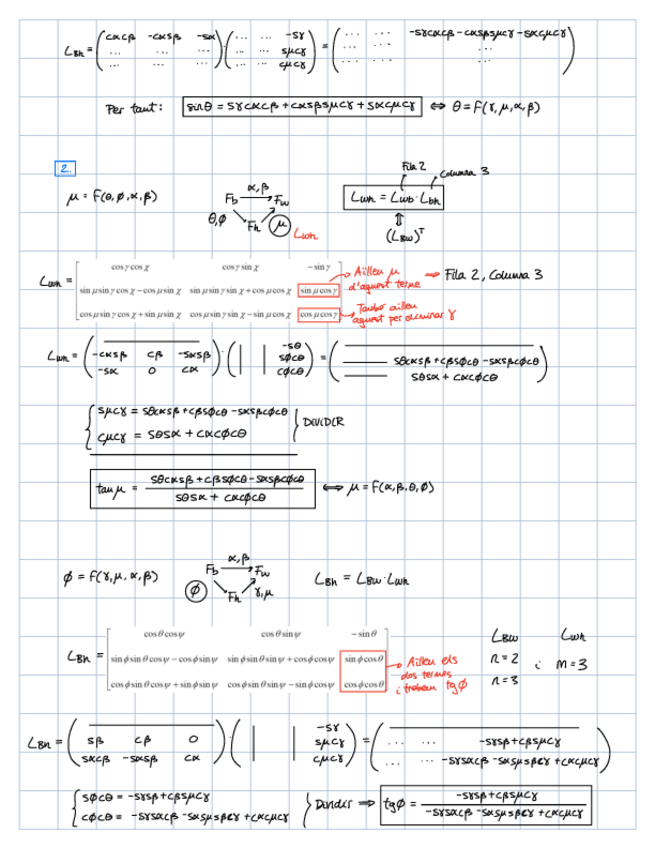 L_Bh = ( cαcβ -cαsβ -sα ... ... ... ... ... ... ) · ( ... ... -sγ ... ... sμcγ ... ... cμcγ ) = ( ... ... -sγcαcβ - cαsβsμcγ - sαcμcγ ... ... ... )
Per tant: sinθ = sγcαcβ + cαsβsμcγ + sαcμcγ ⇔ θ = F(γ, μ, α, β)
2.
Fila 2
Columna 3
μ = F(θ, ϕ, α, β)
α, β
F_b → F_w
L_wh = L_wb · L_bh
θ, ϕ
F_h
μ
L_wh
(L_BW)^T
L_wh =
cos γ cos χ cos γ sin χ − sin γ
sin μ sin γ cos χ − cos μ sin χ sin μ sin γ sin χ + cos μ cos χ sin μ cos γ
cos μ sin γ cos χ + sin μ sin χ cos μ sin γ sin χ − sin μ cos χ cos μ cos γ
Aïlleu μ
d'aquest terme
⇒ Fila 2, Columna 3
També aïlleu
aquest per eliminar γ
L_wh = ( -cαsβ cβ -sαsβ -sα 0 cα ) · ( -sθ sϕcθ cϕcθ ) = ( sθcαsβ + cβsϕcθ - sαsβcϕcθ sθsα + cαcϕcθ )
sμcγ = sθcαsβ + cβsϕcθ - sαsβcϕcθ
cμcγ = sθsα + cαcϕcθ
DIVIDIR
tanμ = (sθcαsβ + cβsϕcθ - sαsβcϕcθ) / (sθsα + cαcϕcθ) ⇔ μ = F(α, β, θ, ϕ)
ϕ = F(γ, μ, α, β)
α, β
F_b → F_w
ϕ
F_h
γ, μ
L_Bh = L_BW · L_wh
L_Bh =
cos θ cos ψ cos θ sin ψ − sin θ
sin ϕ sin θ cos ψ − cos ϕ sin ψ sin ϕ sin θ sin ψ + cos ϕ cos ψ sin ϕ cos θ
cos ϕ sin θ cos ψ + sin ϕ sin ψ cos ϕ sin θ sin ψ − sin ϕ cos ψ cos ϕ cos θ
Aïlleu els
dos termes
i trobem tgϕ
L_BW L_wh
n = 2 i m = 3
n = 3
L_Bh = ( sβ cβ 0 sαcβ -sαsβ cα ) · ( -sγ sμcγ cμcγ ) = ( ... ... -sγsβ + cβsμcγ ... ... -sγsαcβ - sαsμsβcγ + cαcμcγ )
sϕcθ = -sγsβ + cβsμcγ
cϕcθ = -sγsαcβ - sαsμsβcγ + cαcμcγ
Dividir ⇒ tgϕ = (-sγsβ + cβsμcγ) / (-sγsαcβ - sαsμsβcγ + cαcμcγ)